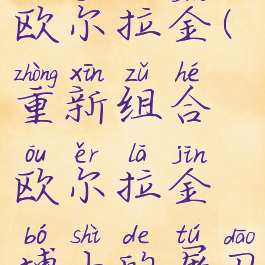 欧尔拉金(
zhòng xīn zǔ hé
重新组合
ōu ěr lā jīn
欧尔拉金
bó shì de tú dāo
博士的屠刀